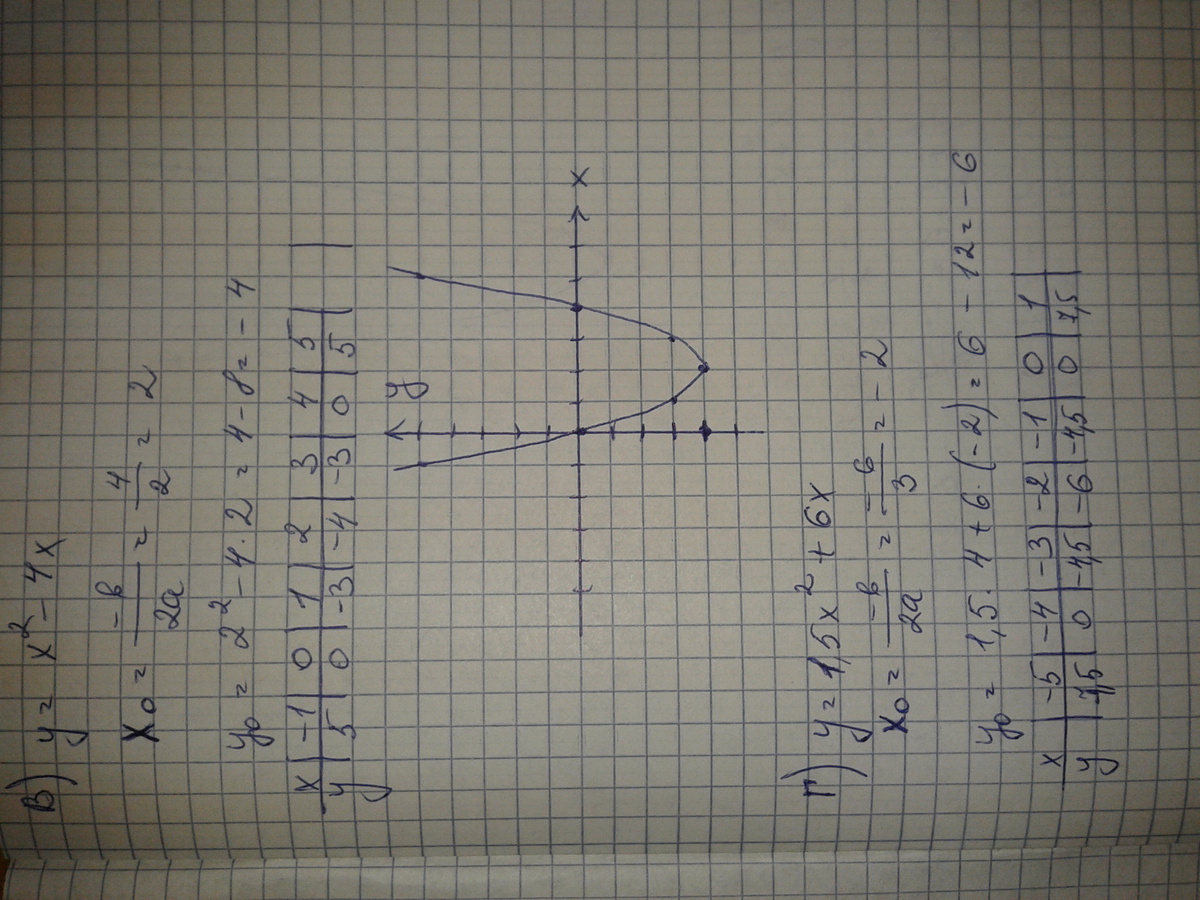 В) y = x² - 4x
x₀ = -b/2a = 4/2 = 2
y₀ = 2² - 4·2 = 4 - 8 = -4
x | -1 | 0 | 1 | 2 | 3 | 4 | 5 |
y | 5 | 0 | -3 | -4 | -3 | 0 | 5 |
y
x
Г) y = 1,5x² + 6x
x₀ = -b/2a = -6/3 = -2
y₀ = 1,5·4 + 6·(-2) = 6 - 12 = -6
x | -5 | -4 | -3 | -2 | -1 | 0 | 1 |
y | 7,5 | 0 | -4,5 | -6 | -4,5 | 0 | 7,5 |